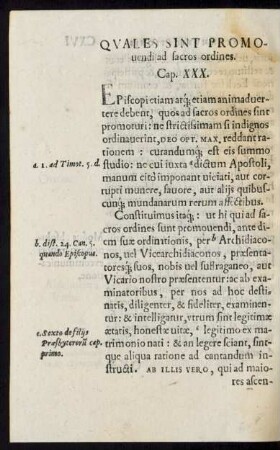 QVALES SINT PROMO-
uendi ad sacros ordines.
Cap. XXX.
EPiscopi etiam atq; etiam animaduer-
tere debent, quos ad sacros ordines sint
promoturi: ne strictissimam si indignos
ordinauerint, DEO OPT. MAX, reddant ra-
tionem: curandumq; est eis summo
a. 1. ad Timot. 5. d. studio: ne cui iuxta a dictum Apostoli,
manum citò imponant viciati, aut cor-
rupti munere, fauore, aut alijs quibus-
cunq; mundanarum rerum affectibus.
Constituimus itaq; : ut hi qui ad sa-
cros ordines sunt promouendi, ante di-
b. dist. 24. Can. 5. cem suæ ordinationis, per b Archidiaco-
quando Episcopus. nos, uel Vicearchidiaconos, præsenta-
toresq; suos, nobis uel suffraganeo, aut
Vicario nostro præsententur: ac ab exa-
minatoribus, per nos ad hoc desti-
natis, diligenter, & fideliter, examinen-
tur: & intelligatur, vtrum sint legitimæ
c. Sexto de filijs ætatis, honestæ uitæ, c legitimo ex ma-
Præsbyterorū cap. trimonio nati: & an legere sciant, sint-
primo. que aliqua ratione ad cantandum in-
structi. AB ILLIS VERO, qui ad maio-
res ascen-